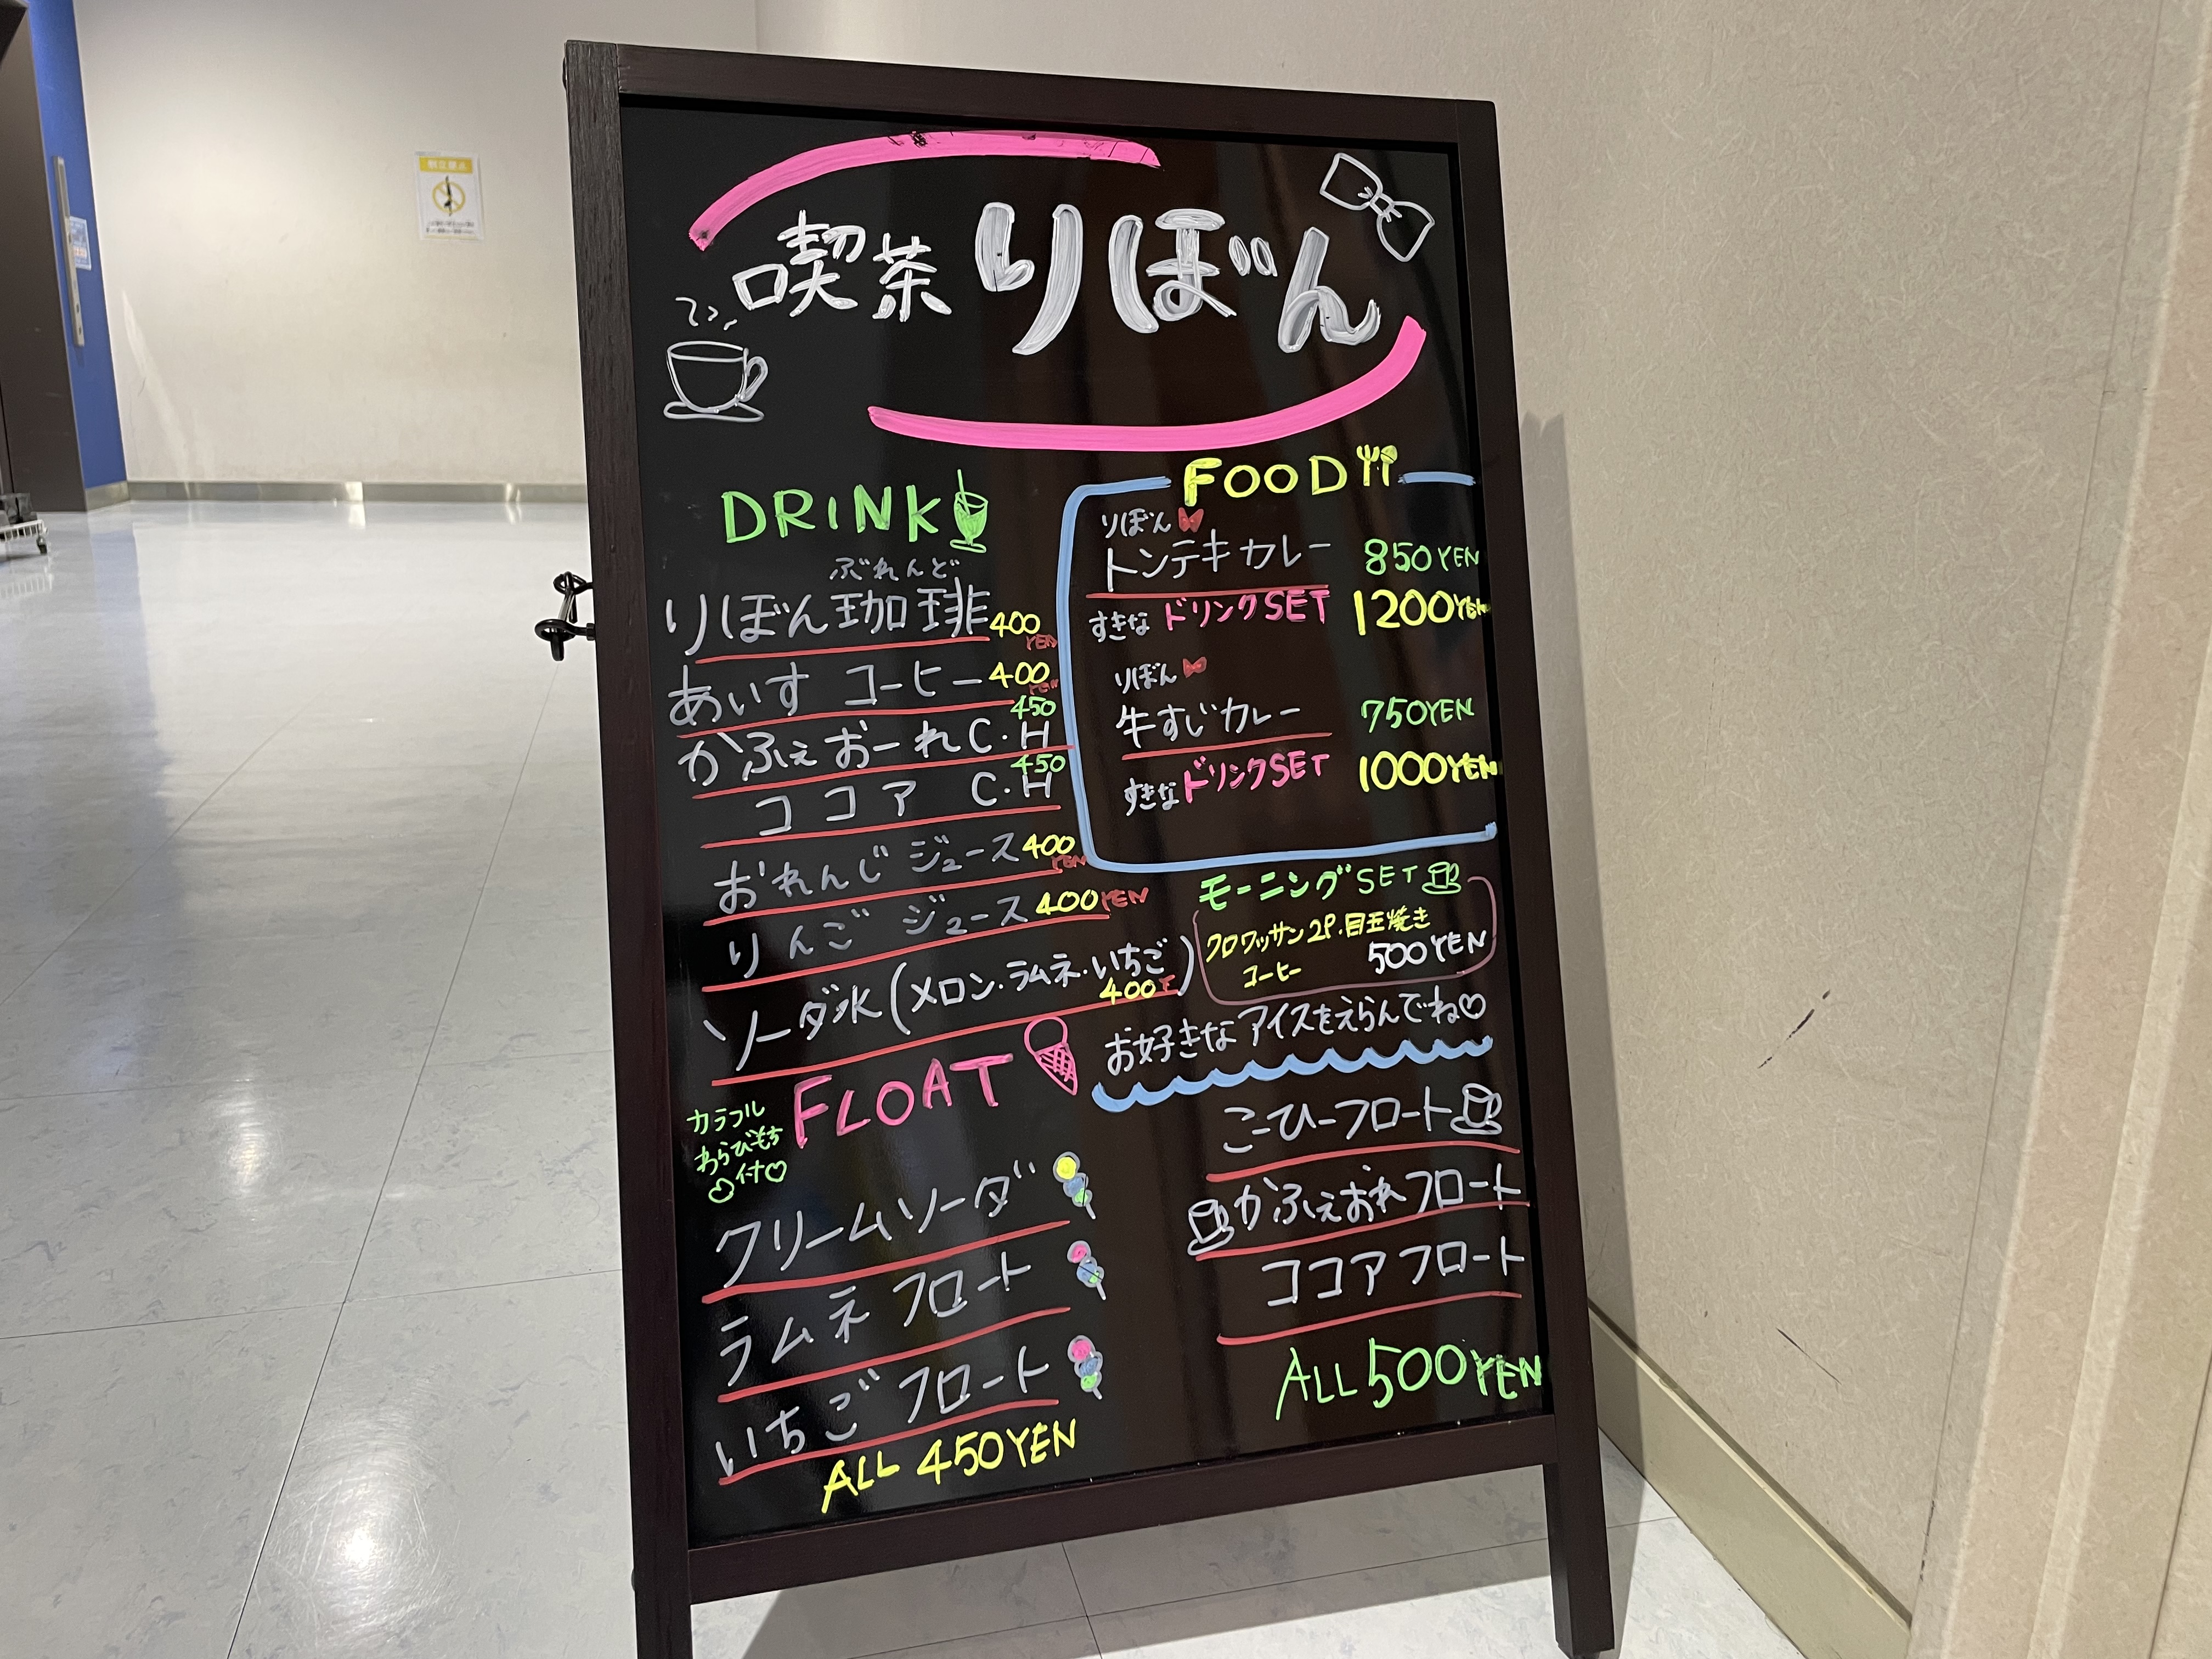 喫茶 りぼん
DRINK
ぶれんど
りぼん珈琲 400 YEN
あいす コーヒー 400 YEN
かふぇおーれ C・H 450
ココア C・H 450
おれんじ ジュース 400 YEN
りんご ジュース 400 YEN
ソーダ水(メロン・ラムネ・いちご) 400 Y
FOOD
りぼん
トンテキカレー 850YEN
すきな ドリンクSET 1200YEN
りぼん
牛すじカレー 750YEN
すきな ドリンクSET 1000YEN
モーニングSET
クロワッサン2P・目玉焼き
コーヒー 500YEN
FLOAT
カラフル
わらびもち
♡付♡
クリームソーダ
ラムネ フロート
いちご フロート
ALL 450YEN
お好きなアイスをえらんでね♡
こーひーフロート
かふぇおれフロート
ココアフロート
ALL 500YEN